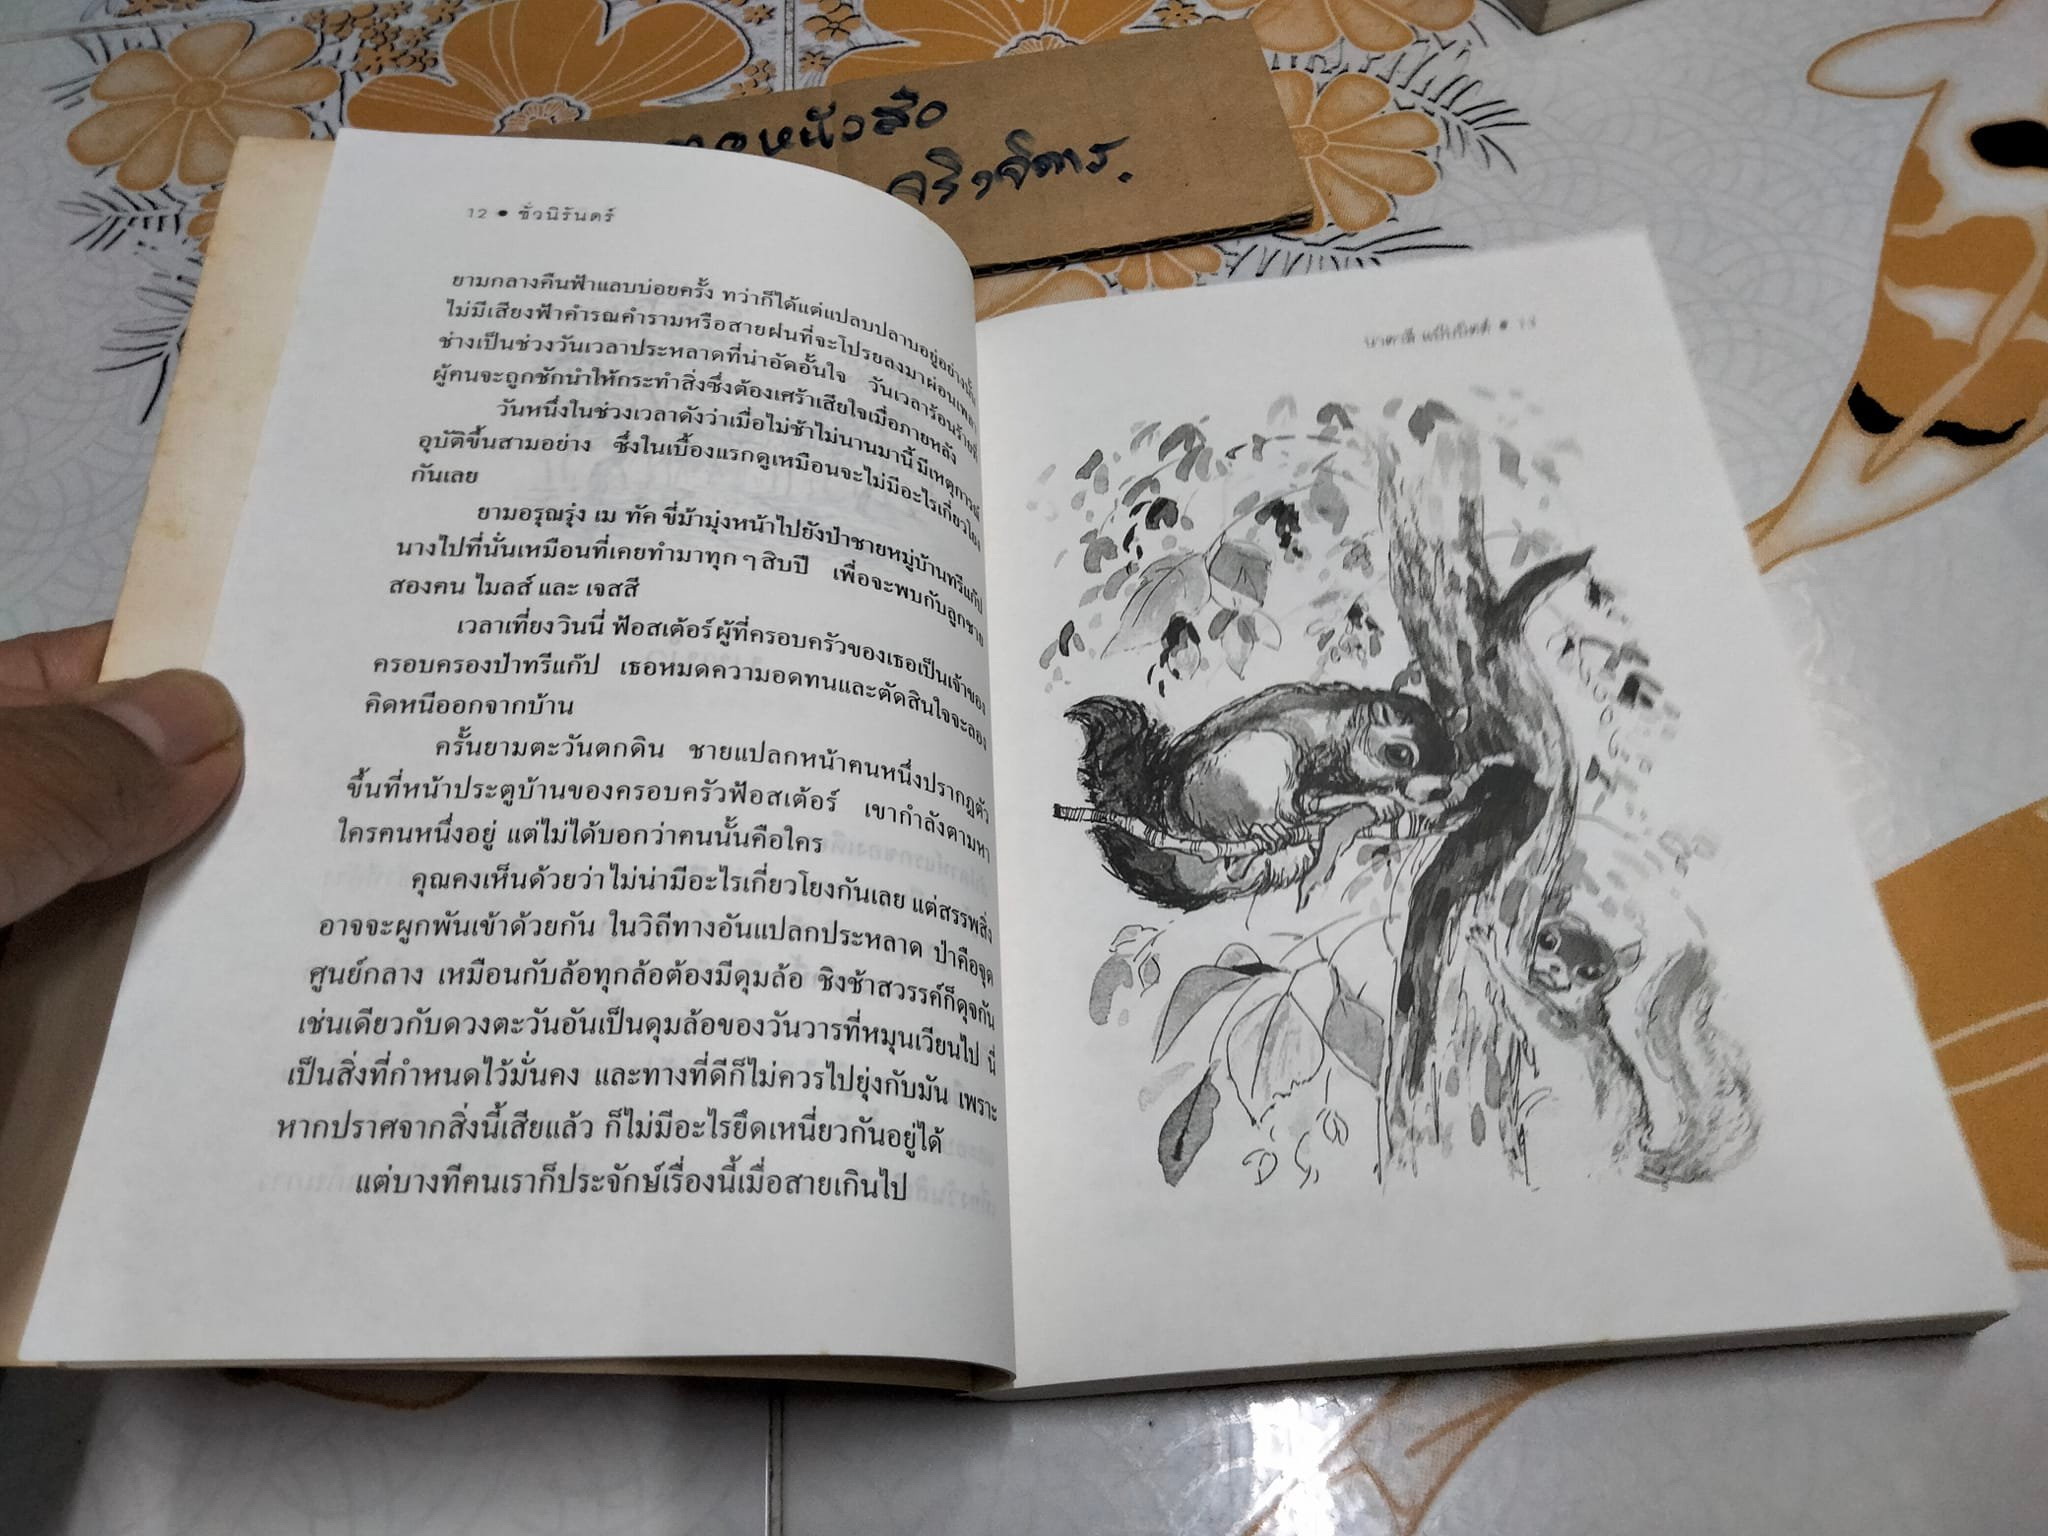 หนังสือ
จริงจิตาร.
12 • ชั่วนิรันดร์
ยามกลางคืนฟ้าแลบบ่อยครั้ง ทว่าก็ได้แต่แปลบปลาบอยู่อย่างนั้น
ไม่มีเสียงฟ้าคำรณคำรามหรือสายฝนที่จะโปรยลงมาผ่อนเพลา
ช่างเป็นช่วงวันเวลาประหลาดที่น่าอัดอั้นใจ วันเวลาร้อนร้ายที่
ผู้คนจะถูกชักนำให้กระทำสิ่งซึ่งต้องเศร้าเสียใจเมื่อภายหลัง
วันหนึ่งในช่วงเวลาดังว่าเมื่อไม่ช้าไม่นานมานี้ มีเหตุการณ์
อุบัติขึ้นสามอย่าง ซึ่งในเบื้องแรกดูเหมือนจะไม่มีอะไรเกี่ยวโยง
กันเลย
ยามอรุณรุ่ง เม ทัค ขี่ม้ามุ่งหน้าไปยังป่าชายหมู่บ้านทรีแก๊ป
นางไปที่นั่นเหมือนที่เคยทำมาทุก ๆ สิบปี เพื่อจะพบกับลูกชาย
สองคน ไมลส์ และ เจสสี
เวลาเที่ยง วินนี่ ฟ้อสเต้อร์ ผู้ที่ครอบครัวของเธอเป็นเจ้าของ
ครอบครองป่าทรีแก๊ป เธอหมดความอดทนและตัดสินใจจะลอง
คิดหนีออกจากบ้าน
ครั้นยามตะวันตกดิน ชายแปลกหน้าคนหนึ่งปรากฏตัว
ขึ้นที่หน้าประตูบ้านของครอบครัวฟ้อสเต้อร์ เขากำลังตามหา
ใครคนหนึ่งอยู่ แต่ไม่ได้บอกว่าคนนั้นคือใคร
คุณคงเห็นด้วยว่าไม่น่ามีอะไรเกี่ยวโยงกันเลย แต่สรรพสิ่ง
อาจจะผูกพันเข้าด้วยกัน ในวิถีทางอันแปลกประหลาด ป่าคือจุด
ศูนย์กลาง เหมือนกับล้อทุกล้อต้องมีดุมล้อ ชิงช้าสวรรค์ก็ดุจกัน
เช่นเดียวกับดวงตะวันอันเป็นดุมล้อของวันวารที่หมุนเวียนไป นี่
เป็นสิ่งที่กำหนดไว้มั่นคง และทางที่ดีก็ไม่ควรไปยุ่งกับมัน เพราะ
หากปราศจากสิ่งนี้เสียแล้ว ก็ไม่มีอะไรยึดเหนี่ยวกันอยู่ได้
แต่บางทีคนเราก็ประจักษ์เรื่องนี้เมื่อสายเกินไป